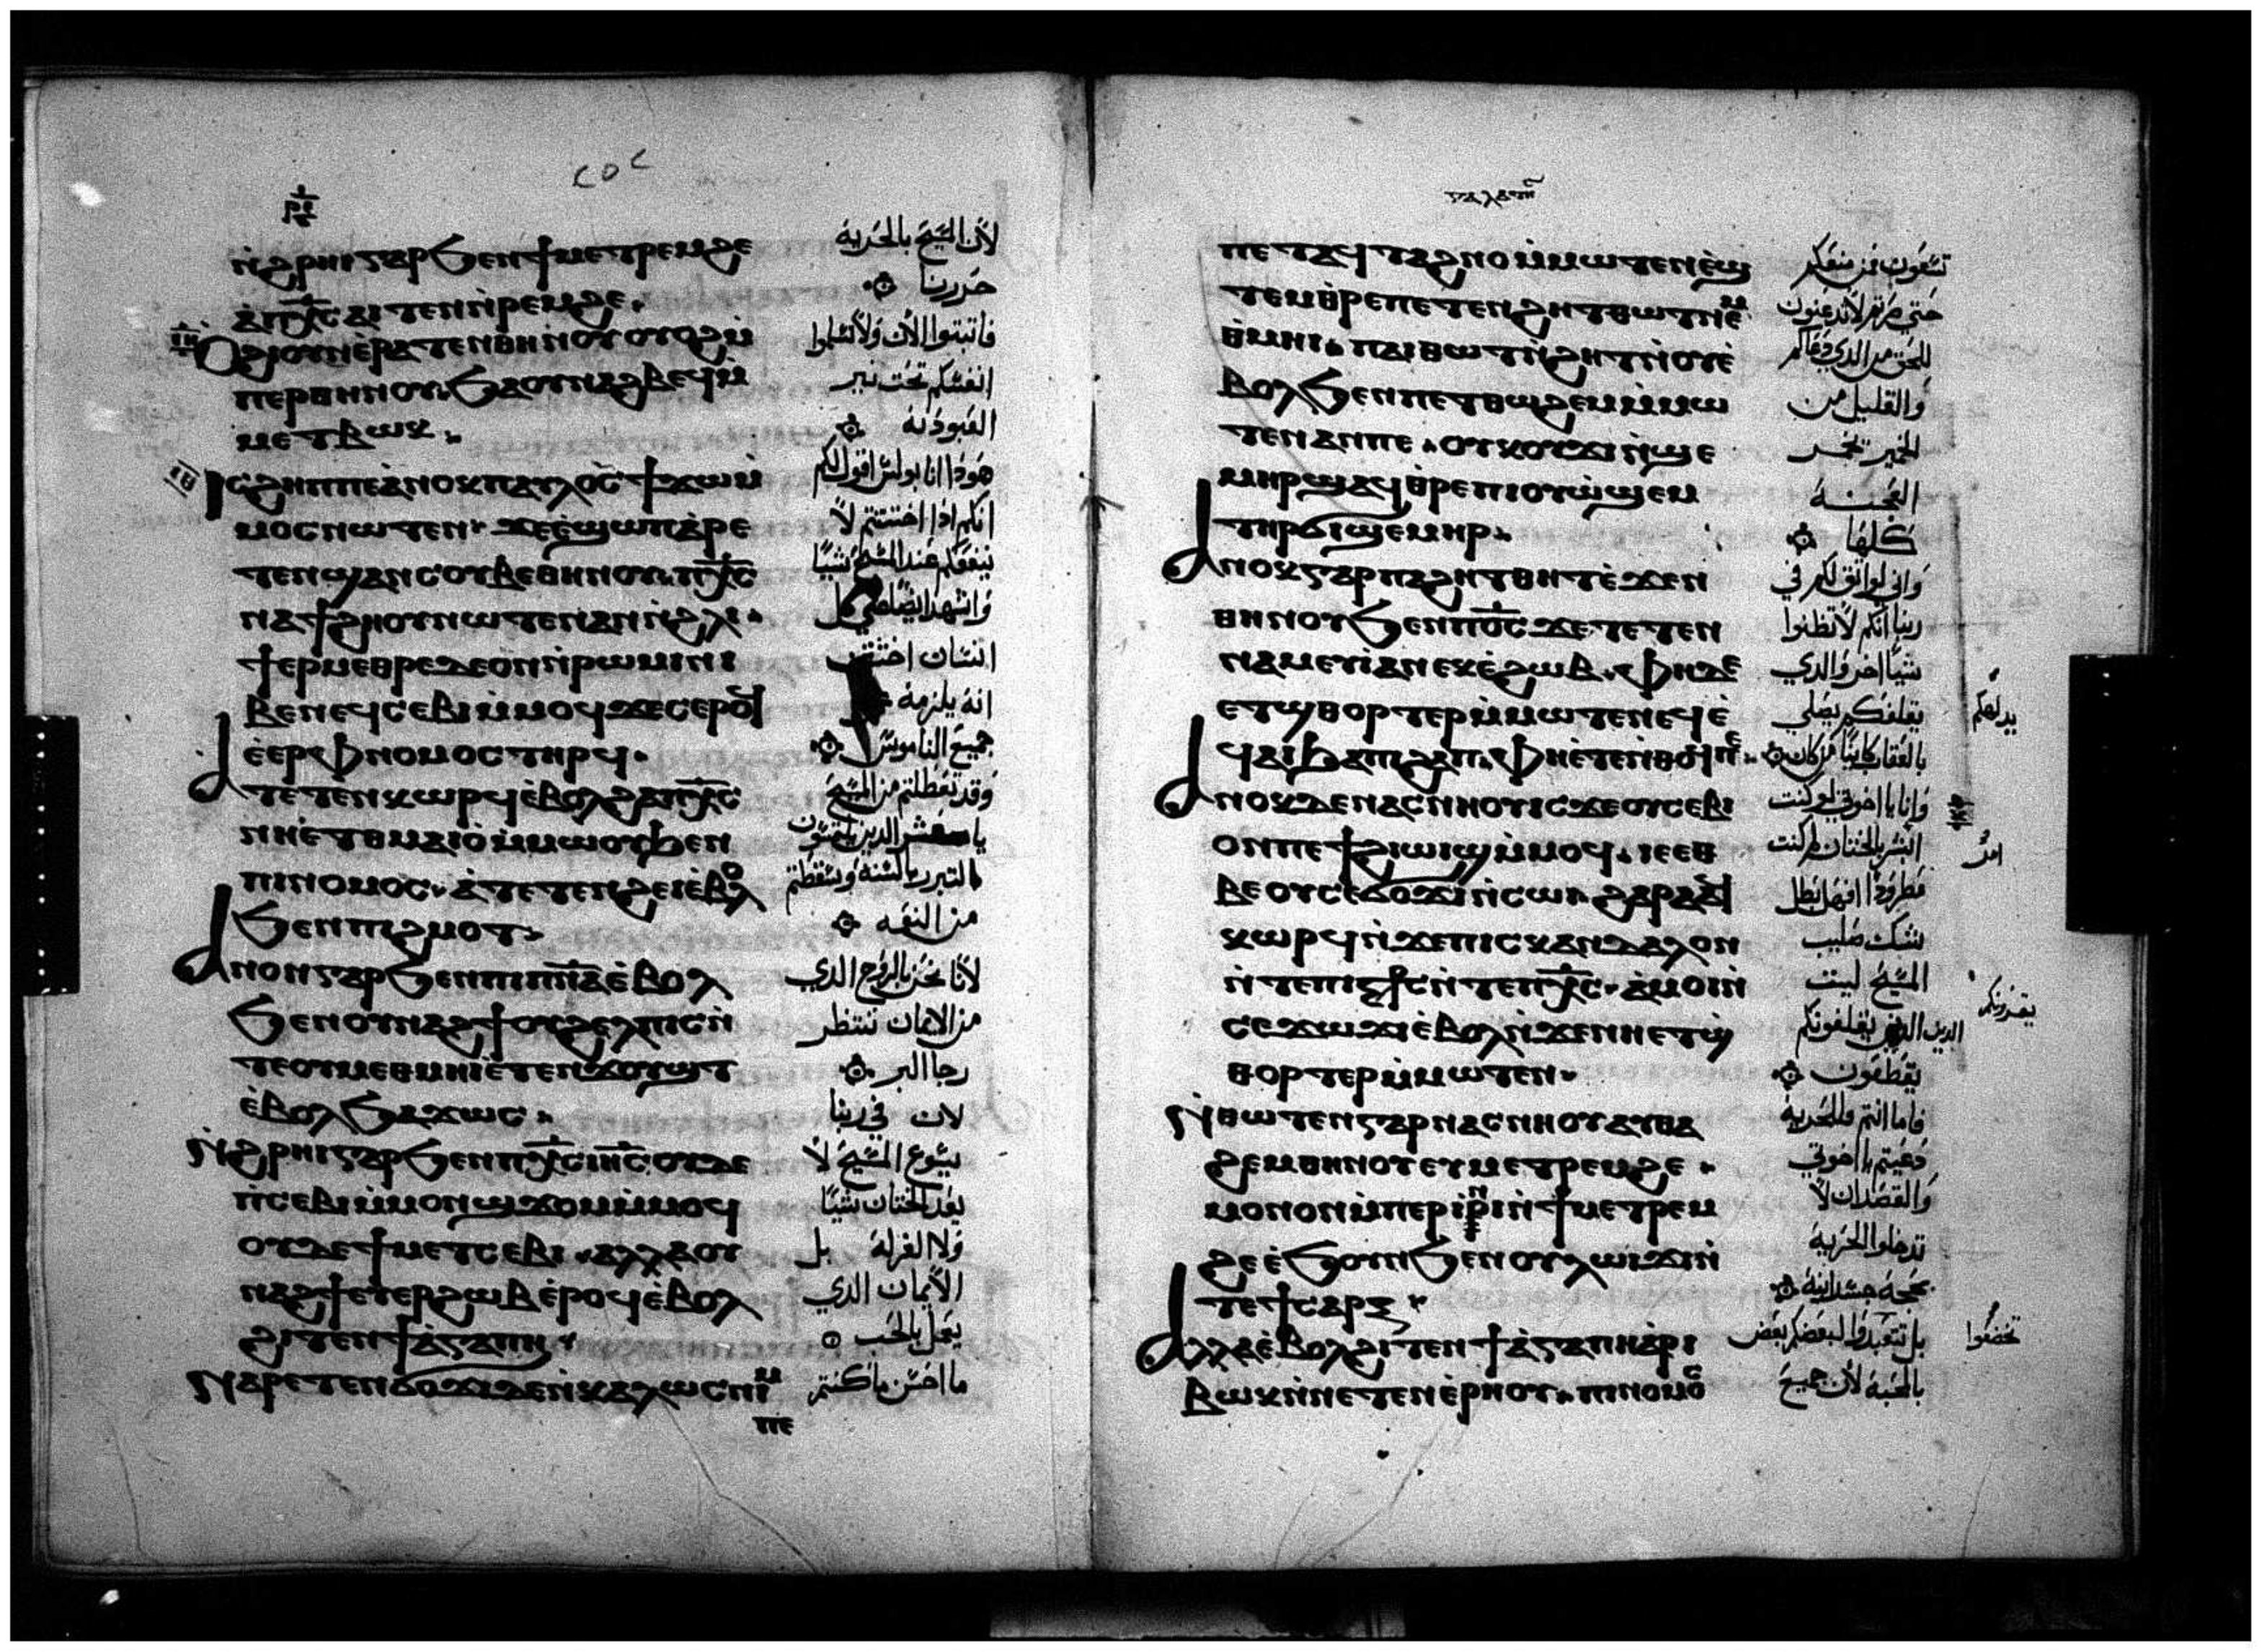 ⲥⲟⲥ
ⲛ̀ϩⲣⲏⲓ ⲅⲁⲣ ϧⲉⲛ ϯⲙⲉⲧⲣⲉⲙϩⲉ
ⲁ̀ⲡⲭ̅ⲥ̅ ⲁⲓⲧⲉⲛ ⲛ̀ⲣⲉⲙϩⲉ.
ⲟϩⲓ ⲟⲩⲛ ⲉ̀ⲣⲁⲧⲉⲛⲑⲏⲛⲟⲩ ⲟⲩⲟϩ ⲙ̀
ⲡⲉⲣⲑⲏⲛⲟⲩ ϧⲁ ⲟⲩⲛⲁϩⲃⲉϥ ⲙ̀
ⲙⲉⲧⲃⲱⲕ.
ⲓⲥϩⲏⲡⲡⲉ ⲁ̀ⲛⲟⲕ ⲡⲁⲩⲗⲟⲥ ϯϫⲱ ⲙ̀
ⲙⲟⲥ ⲛⲱⲧⲉⲛ ϫⲉ ⲉ̀ϣⲱⲡ ⲁ̀ⲣⲉ
ⲧⲉⲛϣⲁⲛⲥⲟⲩⲃⲉⲑⲏⲛⲟⲩ ⲡⲭ̅ⲥ̅
ⲛⲁϯϩⲏⲟⲩ ⲛⲱⲧⲉⲛ ⲁⲛ ⲛ̀ϩⲗⲓ
ϯⲉⲣⲙⲉⲑⲣⲉ ⲇⲉ ⲟⲛ ⲛ̀ⲣⲱⲙⲓ ⲛⲓ
ⲃⲉⲛ ⲉϥⲥⲉⲃⲓ ⲙ̀ⲙⲟϥ ϫⲉ ⲥⲉⲣⲟϥ
ⲉ̀ⲉⲣ ⲫⲛⲟⲙⲟⲥ ⲧⲏⲣϥ.
ⲁⲧⲉⲧⲉⲛⲕⲱⲣϥ ⲉ̀ⲃⲟⲗ ϩⲁ ⲡⲭ̅ⲥ̅
ⲛⲏⲉ̀ⲧⲑⲙⲁⲓⲟ̀ ⲙ̀ⲙⲱⲟⲩ ϧⲉⲛ
ⲡⲓⲛⲟⲙⲟⲥ ⲁ̀ⲧⲉⲧⲉⲛϩⲉⲓ ⲉ̀ⲃⲟⲗ
ϧⲉⲛ ⲡⲓϩⲙⲟⲧ
ⲁⲛⲟⲛ ⲅⲁⲣ ϧⲉⲛ ⲡⲓⲡ̅ⲛ̅ⲁ̅ ⲉ̀ⲃⲟⲗ
ϧⲉⲛ ⲟⲩⲛⲁϩϯ ⲟⲩϩⲉⲗⲡⲓⲥ ⲛ̀
ⲧⲉ ⲟⲩⲙⲉⲑⲙⲏⲓ ⲉ̀ⲧⲉⲛϫⲟⲩϣⲧ
ⲉ̀ⲃⲟⲗ ϧⲁϫⲱⲥ
ⲛ̀ϩⲣⲏⲓ ⲅⲁⲣ ϧⲉⲛ ⲡⲭ̅ⲥ̅ ⲓⲏ̅ⲥ̅ ⲟⲩⲇⲉ
ⲡ̀ⲥⲉⲃⲓ ⲙ̀ⲙⲟⲛ ϣϫⲟⲙ ⲙ̀ⲙⲟϥ
ⲟⲩⲇⲉ ϯⲙⲉⲧⲥⲉⲃⲓ ⲁⲗⲗⲁ ⲟⲩ
ⲛⲁϩϯ ⲉⲧⲉⲣϩⲱⲃ ⲉ̀ⲣⲟϥ ⲉ̀ⲃⲟⲗ
ϩⲓⲧⲉⲛ ϯⲁ̀ⲅⲁⲡⲏ
ⲛⲁⲣⲉⲧⲉⲛϭⲟϫⲓ ⲇⲉ ⲛ̀ⲕⲁⲗⲱⲥ ⲛⲓⲙ
ⲡⲉ
لان المسيح بالحرية
حررنا
فاتبتوا الان ولا تشلموا
انفسكم تحت نير
العبودية
هودا انا بولس اقول لكم
انكم ادا اختتنتم لا
ينفعكم عند المسيح شيئا
واشهد ايضا على كل
انسان اختتن
انه يلزمه
جميع الناموس
وقد تعطلتم من المسيح
من النعمه
لانا نحن بالروح الدي
من الايمان ننتظر
رجا البر
لان في ربنا
يسوع المسيح لا
يقدر الختان شيئا
ولا الغرلة بل
الايمان الدي
يعمل بالحب
ما احسن ما كنتم
ⲅⲁⲗⲁⲧⲏⲥ
ⲡⲉ ⲧⲁϥⲧⲁϩⲛⲟ ⲙ̀ⲙⲱⲧⲉⲛ ⲉ̀ϣ
ⲧⲉⲙⲑⲣⲉ ⲡⲉⲧⲉⲛϩⲏⲧ ⲑⲱⲧ ⲛⲉⲙ
ⲑ̀ⲙⲏⲓ ⲡⲁⲓⲑⲱⲧ ⲛ̀ϩⲏⲧ ⲛ̀ⲟⲩⲉ̀
ⲃⲟⲗ ϧⲉⲛ ⲡⲉⲧⲑⲱϩⲉⲙ ⲙ̀ⲙⲱ
ⲧⲉⲛ ⲁⲛ ⲡⲉ ⲟⲩⲕⲟⲩϫⲓ ⲛ̀ϣⲉ
ⲙⲏⲣ ϣⲁϥⲑⲣⲉ ⲡⲓⲟⲩⲱ̀ϣⲉⲙ
ⲧⲏⲣϥ ϭⲓϣⲉⲙⲏⲣ
ⲁⲛⲟⲕ ⲅⲁⲣ ⲡⲁϩⲏⲧ ⲑⲏⲧ ⲉ̀ϫⲉⲛ
ⲑⲏⲛⲟⲩ ϧⲉⲛ ⲡⲟ̅ⲥ̅ ϫⲉ ⲧⲉⲧⲉⲛ
ⲛⲁⲙⲉⲩⲓ̀ ⲁⲛ ⲉⲕⲉϩⲱⲃ ⲫⲏ ⲇⲉ
ⲉⲧϣⲑⲟⲣⲧⲉⲣ ⲙ̀ⲙⲱⲧⲉⲛ ⲉϥⲉ̀
ϥⲁⲓ ϧⲁ ⲡϩⲁⲡ ⲫⲏⲉ̀ⲧⲉ ⲛ̀ⲑⲟϥ ⲡⲉ
ⲁⲛⲟⲕ ⲇⲉ ⲛⲁⲥⲛⲏⲟⲩ ⲓⲥϫⲉ ⲟⲩⲥⲉⲃⲓ
ⲟⲛ ⲡⲉϯϩⲓⲱⲓϣ ⲙ̀ⲙⲟϥ ⲓⲉ ⲉⲑ
ⲃⲉ ⲟⲩ ⲥⲉϭⲟϫⲓ ⲛ̀ⲥⲱⲓ ϩⲁⲣⲁ ⲁϥ
ⲕⲱⲣϥ ⲛ̀ϫⲉ ⲡⲓⲥⲕⲁⲛⲇⲁⲗⲟⲛ
ⲛ̀ⲧⲉ ⲡⲓⲥⲧ̅ⲥ̅ ⲛ̀ⲧⲉ ⲡⲭ̅ⲥ̅ ⲁ̀ⲙⲟⲓ ⲛ̀
ⲥⲉϫⲱϫⲓ ⲉ̀ⲃⲟⲗ ⲛ̀ϫⲉ ⲛⲏ ⲉⲧϣ̀
ⲑⲟⲣⲧⲉⲣ ⲙ̀ⲙⲱⲧⲉⲛ
ⲛ̀ⲑⲱⲧⲉⲛ ⲅⲁⲣ ⲛⲁⲥⲛⲏⲟⲩ ⲁⲩⲑⲁ
ϩⲉⲙⲑⲏⲛⲟⲩ ⲉⲩⲙⲉⲧⲣⲉⲙϩⲉ
ⲙⲟⲛⲟⲛ ⲙ̀ⲡⲉⲣⲓⲣⲓ ⲛ̀ϯⲙⲉⲧⲣⲉⲙ
ϩⲉ ⲉ̀ϧⲟⲩⲛ ϧⲉⲛ ⲟⲩⲗⲱⲓϫⲓ ⲛ̀
ⲧⲉ ϯⲥⲁⲣⲝ
ⲁⲗⲗⲁ ⲉ̀ⲃⲟⲗ ϩⲓⲧⲉⲛ ϯⲁ̀ⲅⲁⲡⲏ ⲁ̀ⲣⲓ
ⲃⲱⲕ ⲛ̀ⲛⲉⲧⲉⲛⲉ̀ⲣⲏⲟⲩ ⲡⲓⲛⲟⲙⲟⲥ
تسعون فمن منعكم
للحق من الدي دعاكم
والقليل من
الخمير يخمر
العجنة
كلها
واني لواثق لكم في
ربنا انكم لا تظنوا
شيئا اخر والدي
يقلقكم يصلي
بالعقاب كاينا من كان
وانا يا اخوتي لو كنت
ابشر بالختان لم كنت
مطرودا افهل بطل
شك صليب
المسيح ليت
الدين يقلقونكم
يقطعون
فاما انتم فللحرية
دعيتم يا اخوتي
والقصد ان لا
تدخلوا الحرية
بحجة جسدانية
بل تتعبدوا لبعضكم بعض
بالمحبة لان جميع
تخضعوا